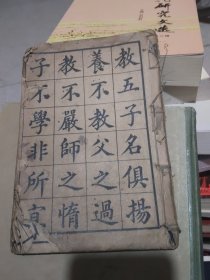 教五子名俱揚
養不教父之過
教不嚴師之惰
子不學非所宜
研究文选